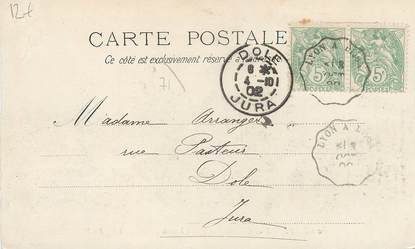 12€
CARTE POSTALE
Ce côté est exclusivement réservé à l'adresse
DOLE
6 *
4 -10
02
JURA
LYON A
5c 5c
71
LYON A
Madame Arranger
rue Pasteur
Dole
Jura